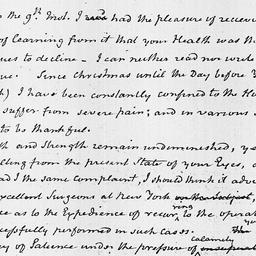 the 9th Inst. I had the pleasure of receiv
of learning from it that your Health was th
ues to decline — I can neither read nor write
Since Christmas until the Day before
I have been constantly confined to the Ho
suffer from severe pain; and in various
to be thankful.
th and Strength remain undiminished, ye
lling from the present State of your Eyes,
ad I the same complaint, I should think it adv
xcellent Surgeons at New York
ce as to the Expedience of recurring to the operat
cessfully performed in such cases.
cy of Patience under the pressure of calamity